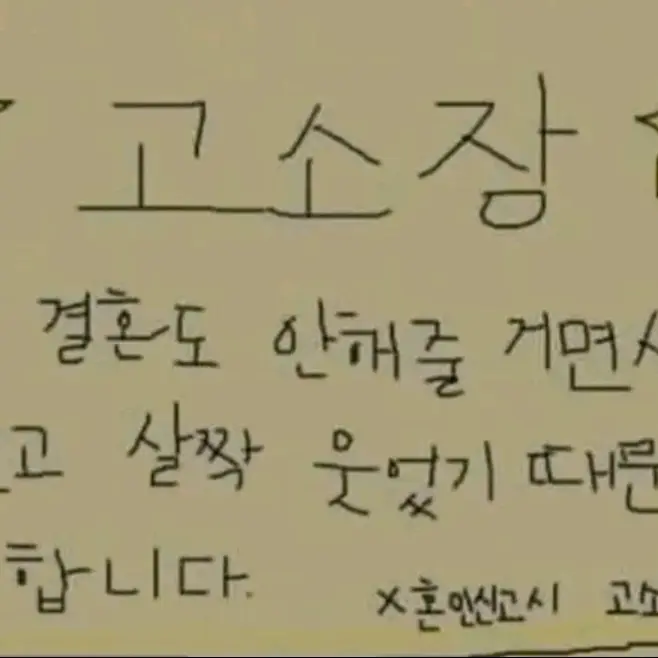 고소장
결혼도 안해줄 거면서
고 살짝 웃었기 때문
합니다.
x혼인신고시 고소